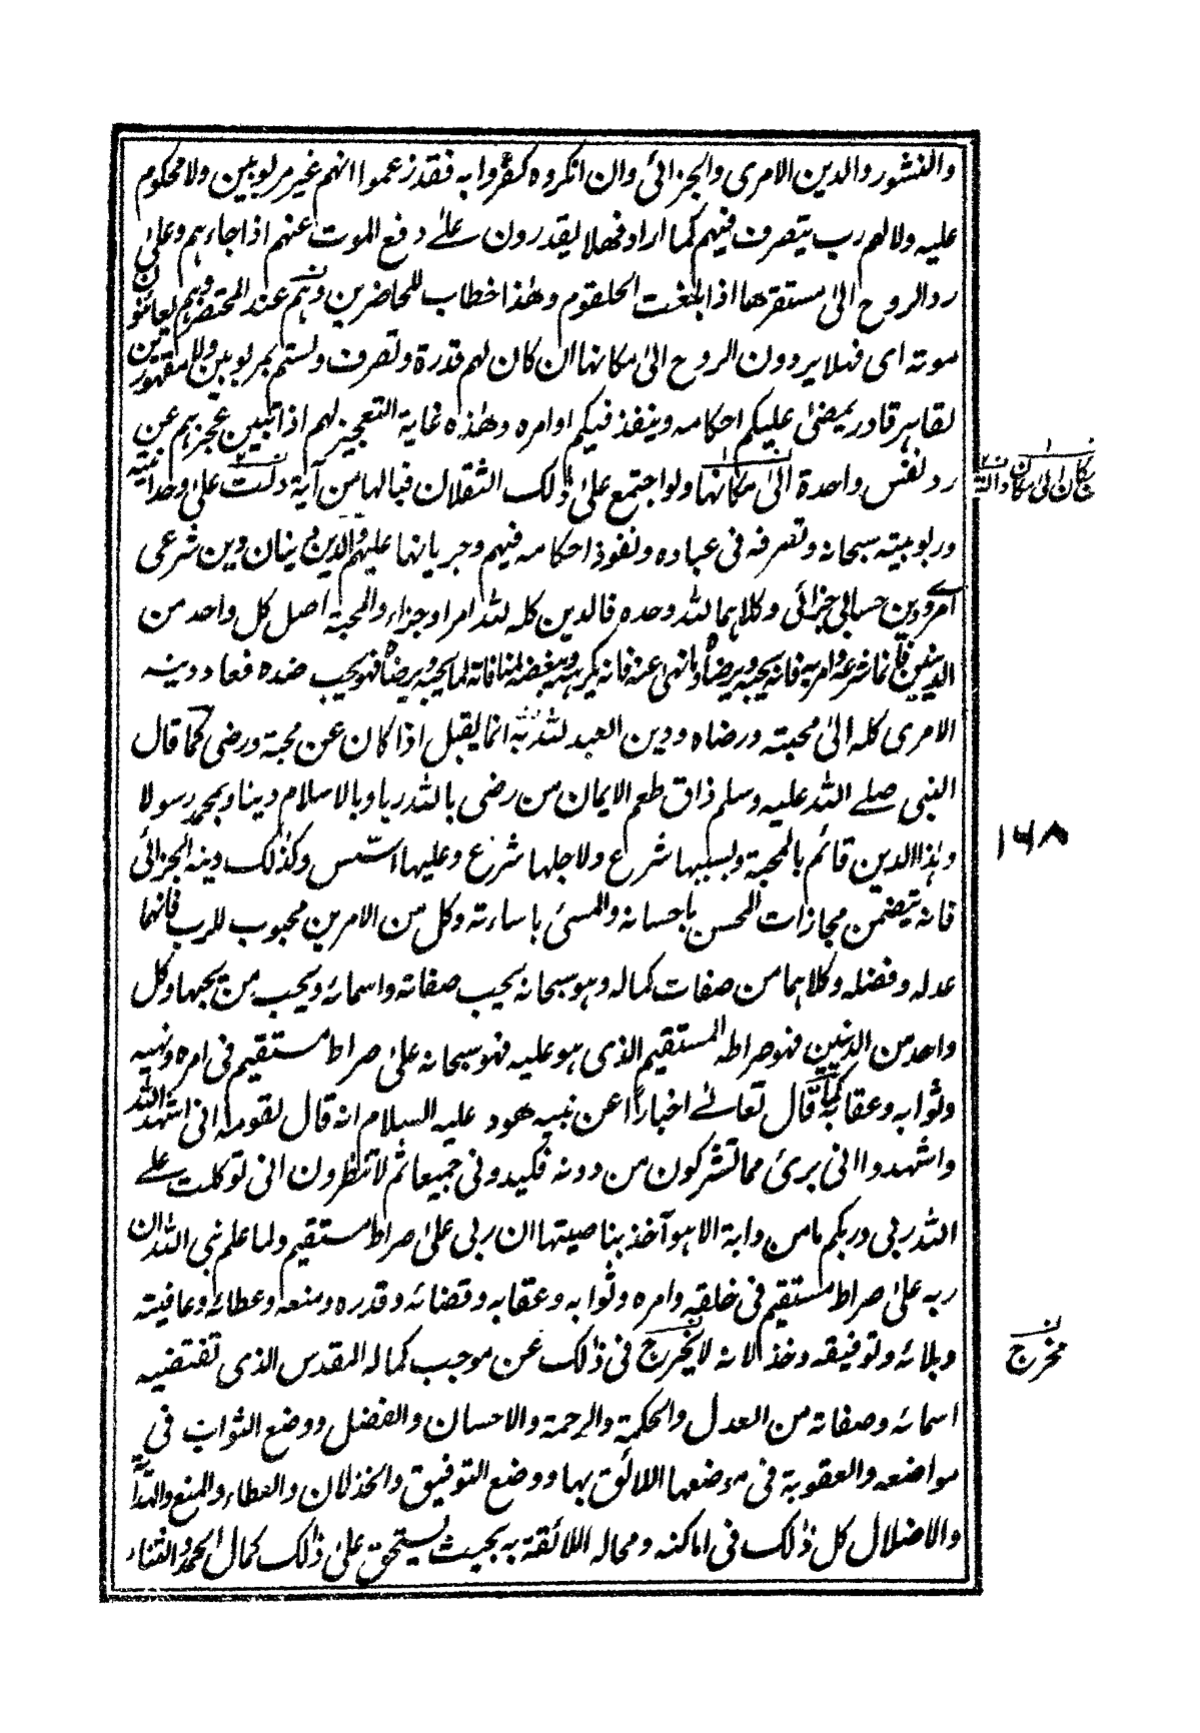 والنشور والدين الامرى والجزائى وان انكروه كفروا به فقد زعموا انهم غير مربوبين ولا محكوم
عليه ولا لهم رب يتصرف فيهم كما اراد فهلا يقدرون على دفع الموت عنهم اذا جاءهم وعلى
رد الروح الى مستقرها اذا بلغت الحلقوم وهذا خطاب للحاضرين وهم عند المحتضر وهم يعائنون
موته اى فهلا يردون الروح الى مكانها ان كان لهم قدرة وتصرف ولستم بمربوبين ولا مقهورين
لقاهر قادر يمضى عليكم احكامه وينفذ فيكم اوامره وهذه غاية التعجيز لهم اذا تبين عجزهم عن
رد نفس واحدة الى مكانها ولو اجتمع على ذلك الثقلان فيالها من آية دلت على وحدانيته
وربوبيته سبحانه وتصرفه فى عباده ونفوذ احكامه فيهم وجريانها عليهم والدين دينان دين شرعى
امرى ودين حسابى جزائى وكلاهما لله وحده فالدين كله لله امرا وجزاء والمحبة اصل كل واحد من
الدينين فان ما شرعه وامر به فانه يحبه ويرضاه وما نهى عنه فانه يكرهه ويبغضه لمنافاته لما يحبه ويرضاه فهو يحب ضده فعاد دينه
الامرى كله الى محبته ورضاه ودين العبد لله به انما يقبل اذا كان عن محبة ورضى كما قال
النبى صلے الله عليه وسلم ذاق طعم الايمان من رضى بالله ربا وبالاسلام دينا وبمحمد رسولا
وهذا الدين قائم بالمحبة وبسببها شرع ولاجلها شرع وعليها اسّس وكذلك دينه الجزائى
فانه يتضمن مجازات المحسن باحسانه والمسئ باساءته وكل من الامرين محبوب للرب فانهما
عدله وفضله وكلاهما من صفات كماله وهو سبحانه يحب صفاته واسمائه ويحب من يحبها وكل
واحد من الدينين فهو صراطه المستقيم الذى هو عليه فهو سبحانه على صراط مستقيم فى امره ونهيه
وثوابه وعقابه كما قال تعالى اخبارا عن نبيه هود عليه السلام انه قال لقومه انى اشهد الله
واشهدوا انى برئ مما تشركون من دونه فكيدونى جميعا ثم لا تنظرون انى توكلت على
الله ربى وربكم ما من دابة الا هو آخذ بناصيتها ان ربى على صراط مستقيم ولما علم نبى الله ان
ربه على صراط مستقيم فى خلقه وامره وثوابه وعقابه وقضائه وقدره ومنعه وعطائه وعافيته
وبلائه وتوفيقه وخذلانه لا يخرج فى ذلك عن موجب كماله المقدس الذى تقتضيه
اسمائه وصفاته من العدل والحكمة والرحمة والاحسان والفضل ووضع الثواب فى
مواضعه والعقوبة فى موضعها اللائق بها ووضع التوفيق والخذلان والعطاء والمنع والهداية
والاضلال كل ذلك فى اماكنه ومحاله اللائقة به بحيث يستحق على ذلك كمال الحمد والثناء
١٦٨
مخرج